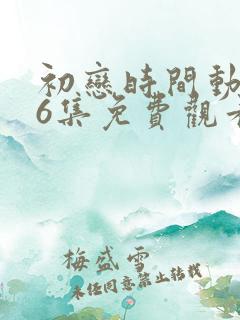 初戀時間動
6集免費觀看
梅盛雪
未经同意禁止转载